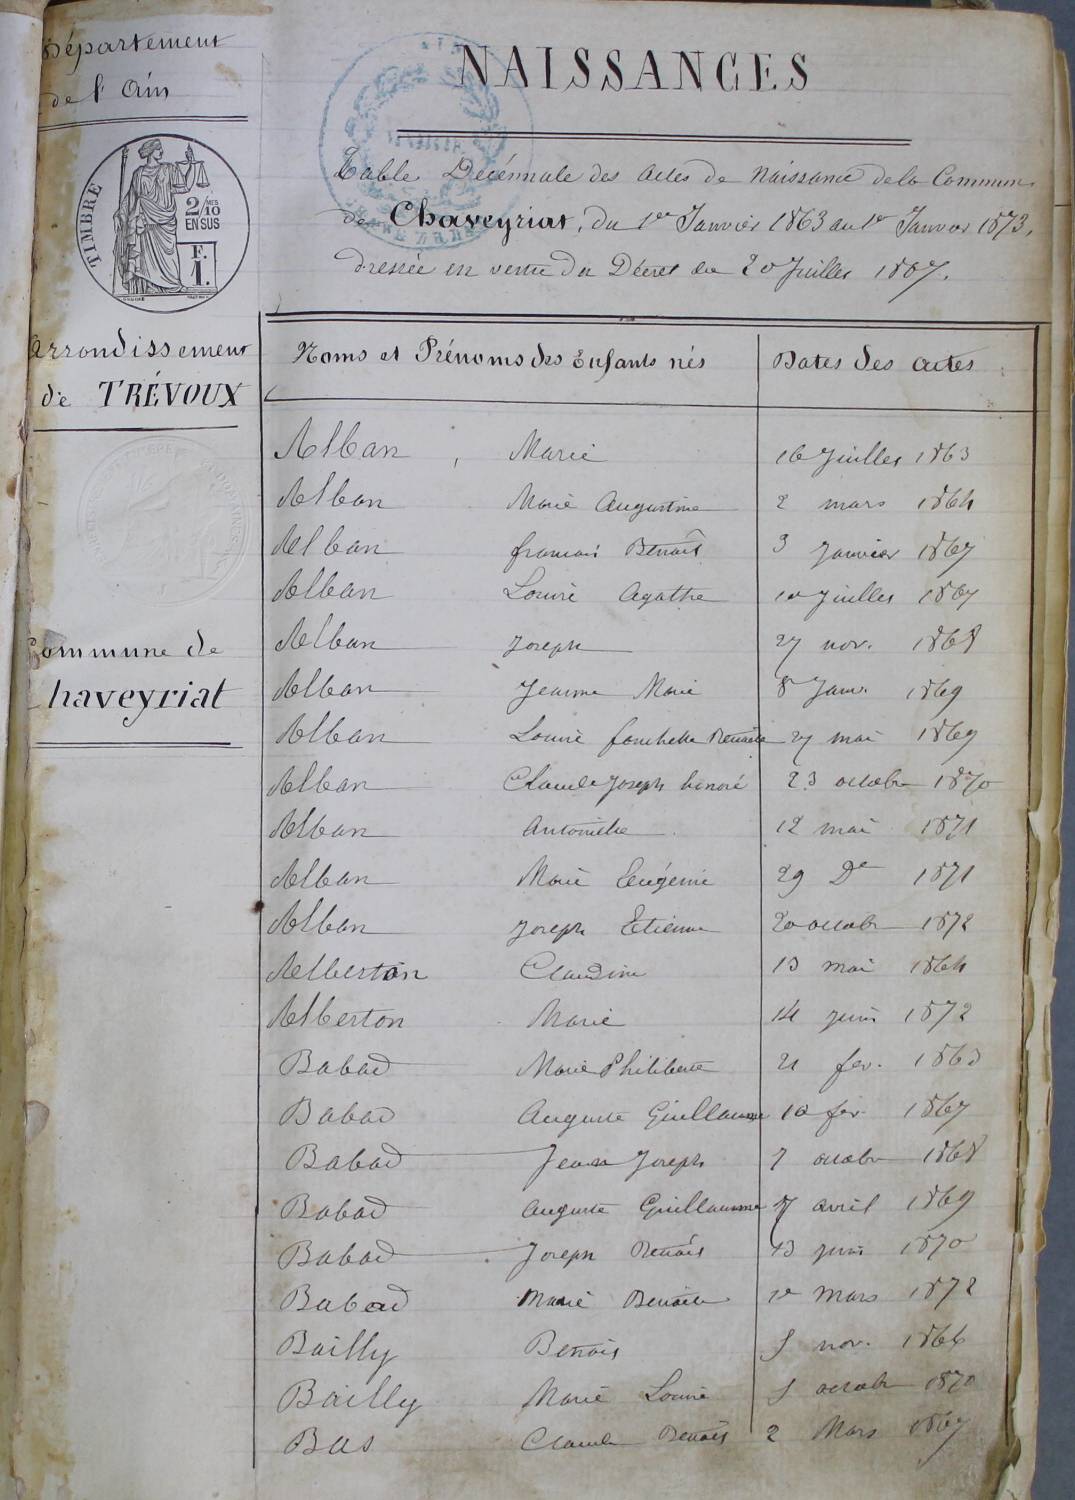 Département
de l'Ain
TIMBRE
2/10 MES
EN SUS
F.
1.
Arrondissement
de TRÉVOUX
Commune de
haveyriat
NAISSANCES
Table Décennale des actes de Naissance de la Commune
de Chaveyriat, du 1er Janvier 1863 au 1er Janvier 1873,
dressée en vertu du Décret du 20 Juillet 1807.
Noms et Prénoms des Enfants nés Dates des actes
Alban Marie 16 Juillet 1863
Alban Marie Augustine 2 mars 1864
Alban francois Benoît 3 Janvier 1867
Alban Louise Agathe 10 Juillet 1867
Alban Joseph 27 nov. 1868
Alban Jeanne Marie 8 Janv. 1869
Alban Louise fanchette Benoite 27 mai 1869
Alban Claude Joseph honoré 23 octobre 1870
Alban Antoinette 12 mai 1871
Alban Marie Eugénie 29 De 1871
Alban Joseph Etienne 20 octobre 1872
Alberton Claudine 13 mai 1864
Alberton Marie 14 juin 1872
Babad Marie Philiberte 21 fev. 1863
Babad Auguste Guillaume 10 fev. 1867
Babad Jean Joseph 7 octobre 1868
Babad Auguste Guillaume 17 avril 1869
Babad Joseph Benoit 13 juin 1870
Babad Marie Benoite 10 mars 1872
Bailly Benoit nov. 1866
Bailly Marie Louise octobre 1870
Bas Claude Benoit 2 Mars 1867